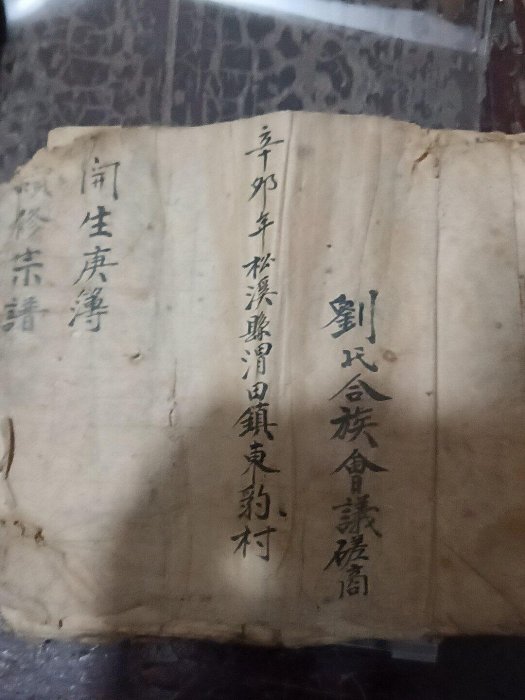 劉氏合族會議磋商
辛卯年松溪縣渭田鎮東豹村
開生庚簿
修宗譜